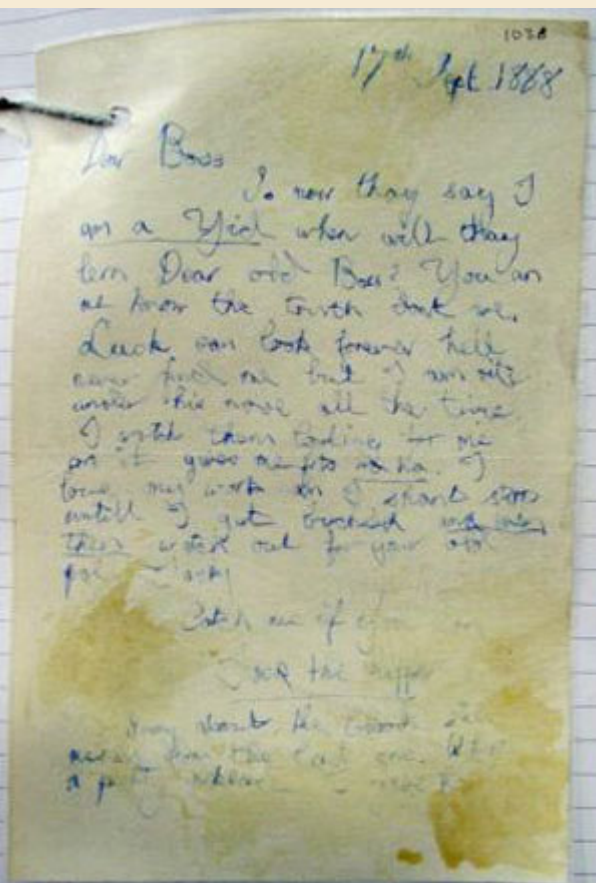 1028
17th Sept 1888
Dear Boss
So now thay say I
am a Yid when will thay
lern Dear old Boss? You an
me know the truth dont we.
Lusk can look forever hell
never find me but I am rite
under his nose all the time.
I watch them looking for me
an it gives me fits ha ha. I
love my work an I shant stop
untill I get buckled and even
then watch out for your old
pal Jacky
Catch me if you
Jack the Ripper
Sorry about the blood
never from the last one. What
a